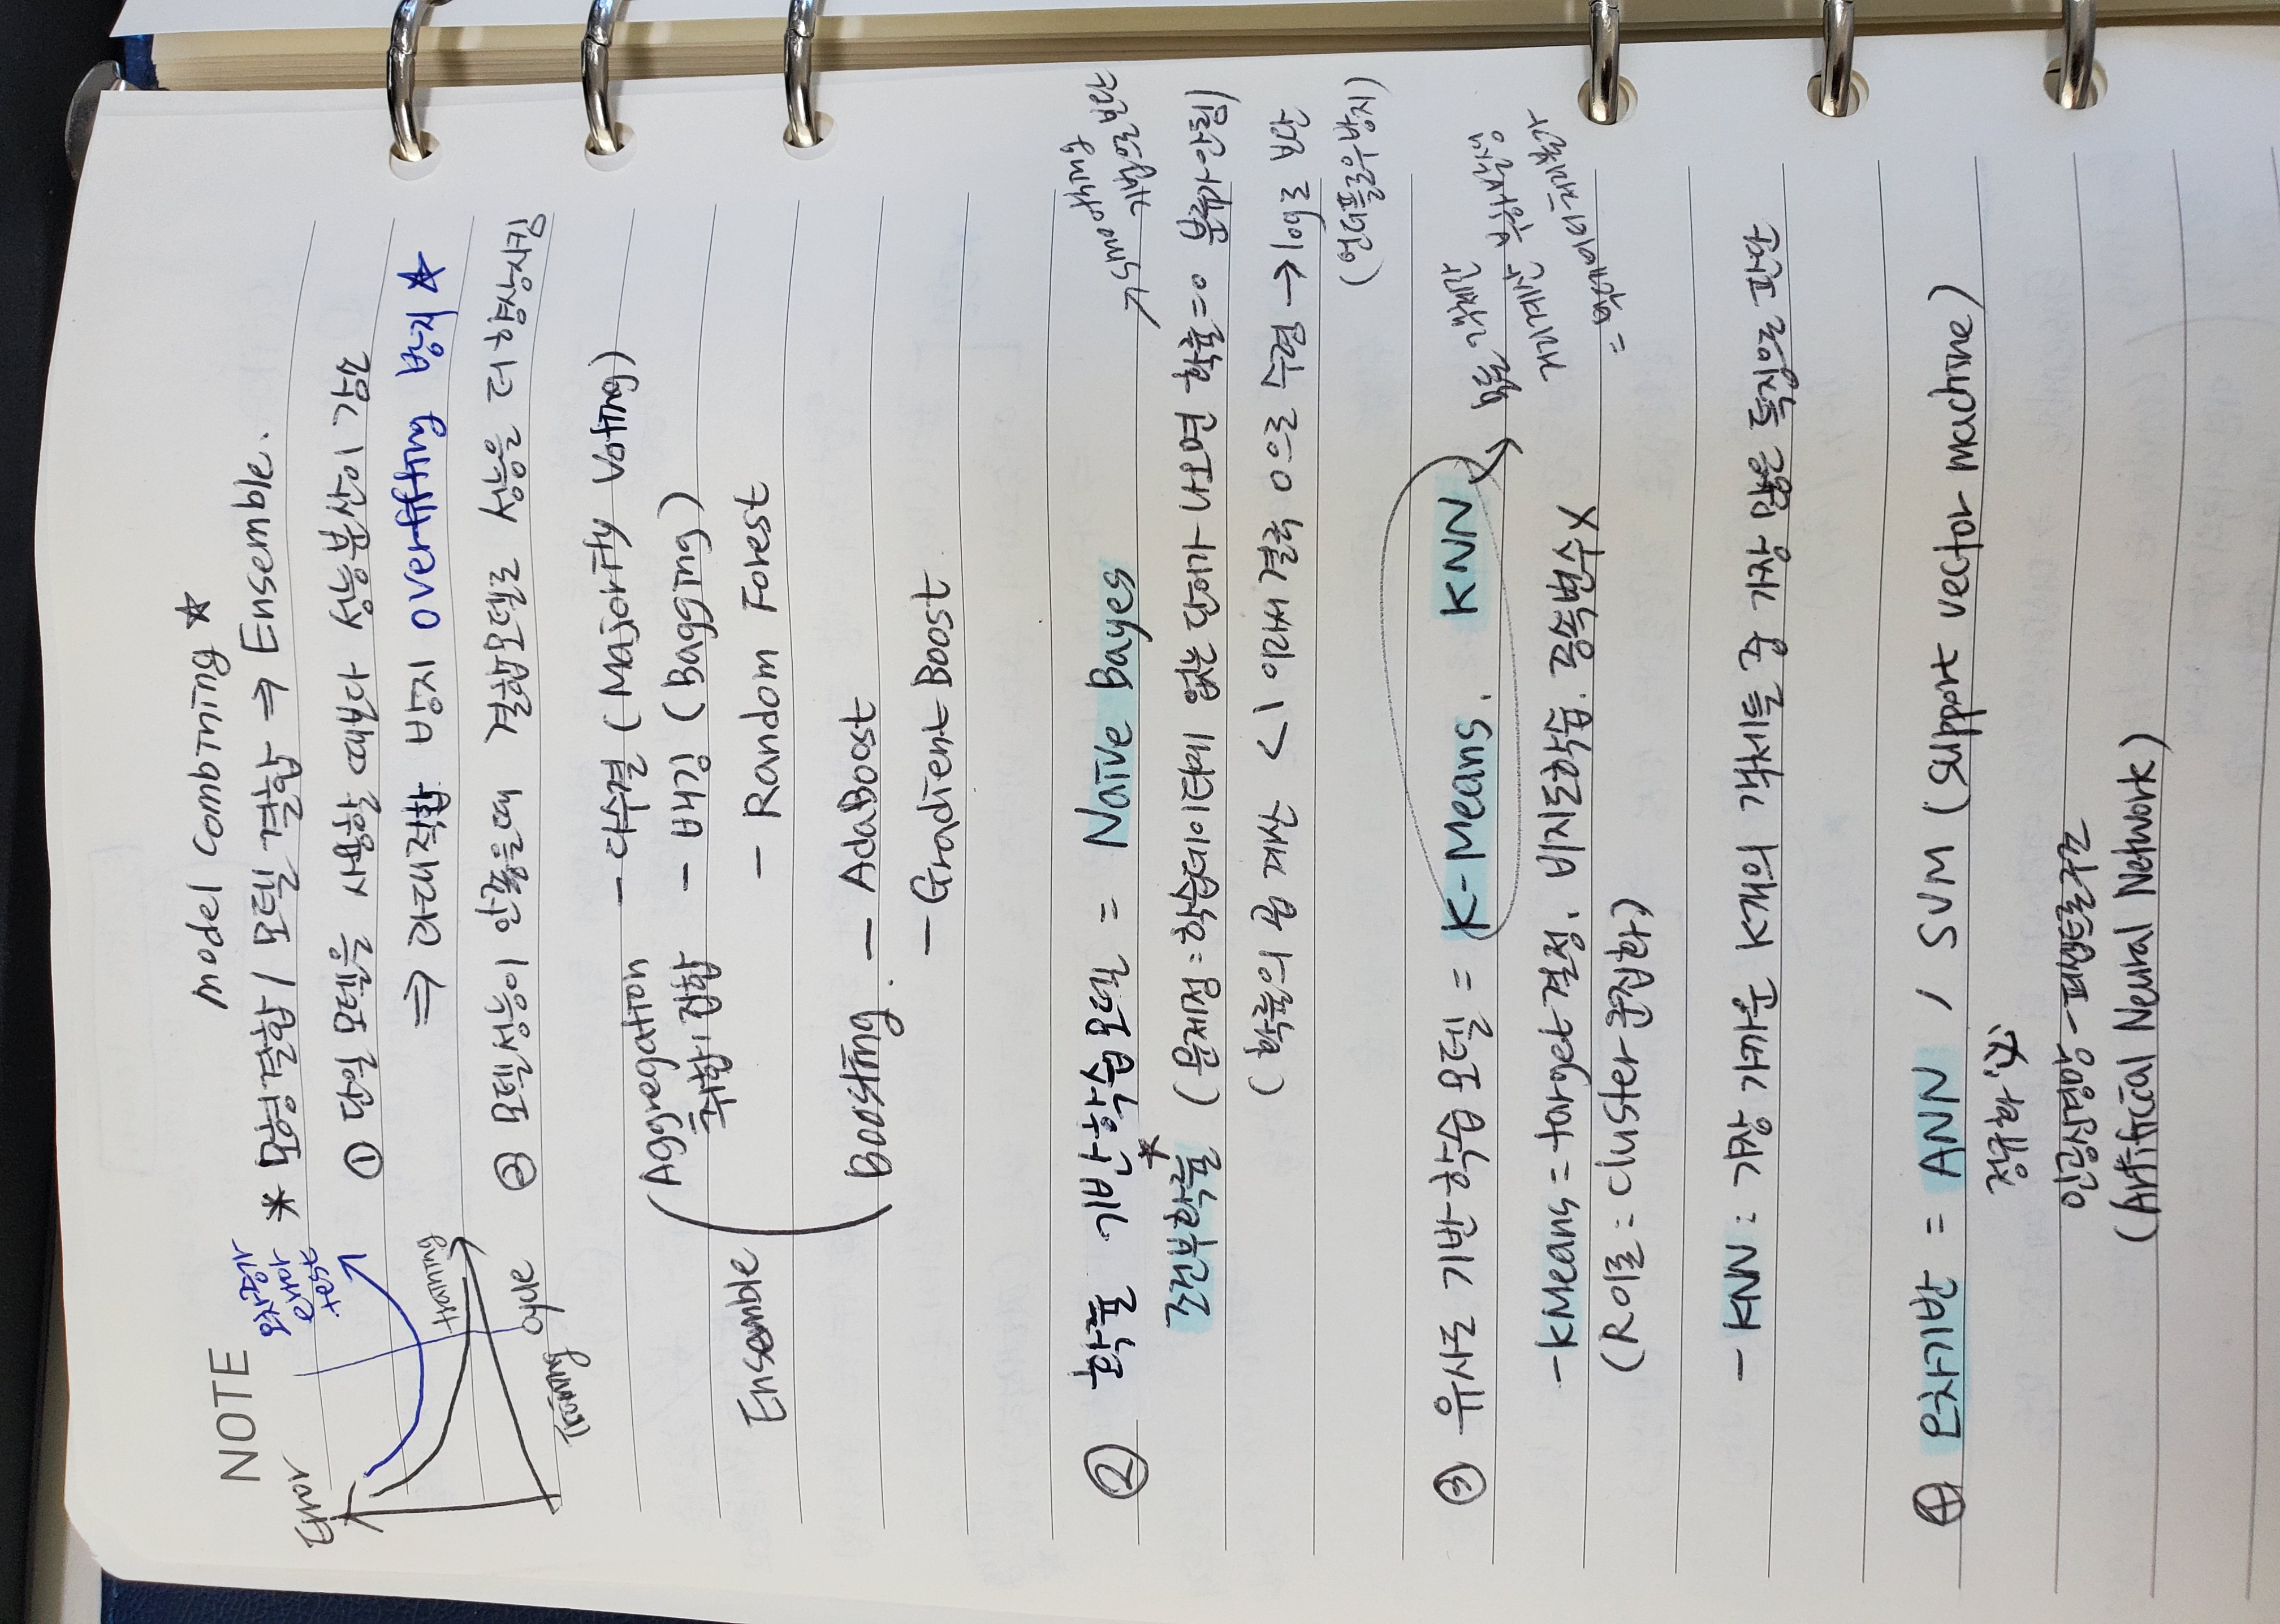 NOTE
model combining ☆
* 모형결합 / 모델 결합 ⇒ Ensemble.
Error
오차증가
error
test
training
Training cycle
① 단일 모델을 사용할 때보다 성능분산이 감소
⇒ 과대적합 방지 overfitting 방지 ☆
② 모델성능이 안좋을때 결합모델로 성능을 더 향상시킴
Ensemble
Aggregation
취합, 집합
- 다수결 (Majority Voting)
- 배깅 (Bagging)
- Random Forest
Boosting - AdaBoost
- Gradient Boost
② 확률 기반학습모델 = Naive Bayes
→ smoothing
기법으로 보완
조건부확률 ☆ (문제점 : 학습데이터에 없는 단어가 나오면 확률=0 분류가 안됨)
(확률의 곱 계산 <1 이라서 결국 0으로 수렴 → log로 보완
(언더플로우방지)
③ 유사도 기반 학습 모델 = K-Means, KNN
모든 객체간
거리계산 부하발생
= 빅데이터 처리불가
- kMeans = target 결정, 비지도학습, 종속변수 X
(R이론 : Cluster 군집화)
- KNN : 가장 가까운 K개의 객체들 중 가장 많은 특징으로 판단
④ 오차기반 = ANN / SVM (support vector machine)
정규화 ☆
인공신경망 - 퍼셉트론구조
(Artificial Neural Network)